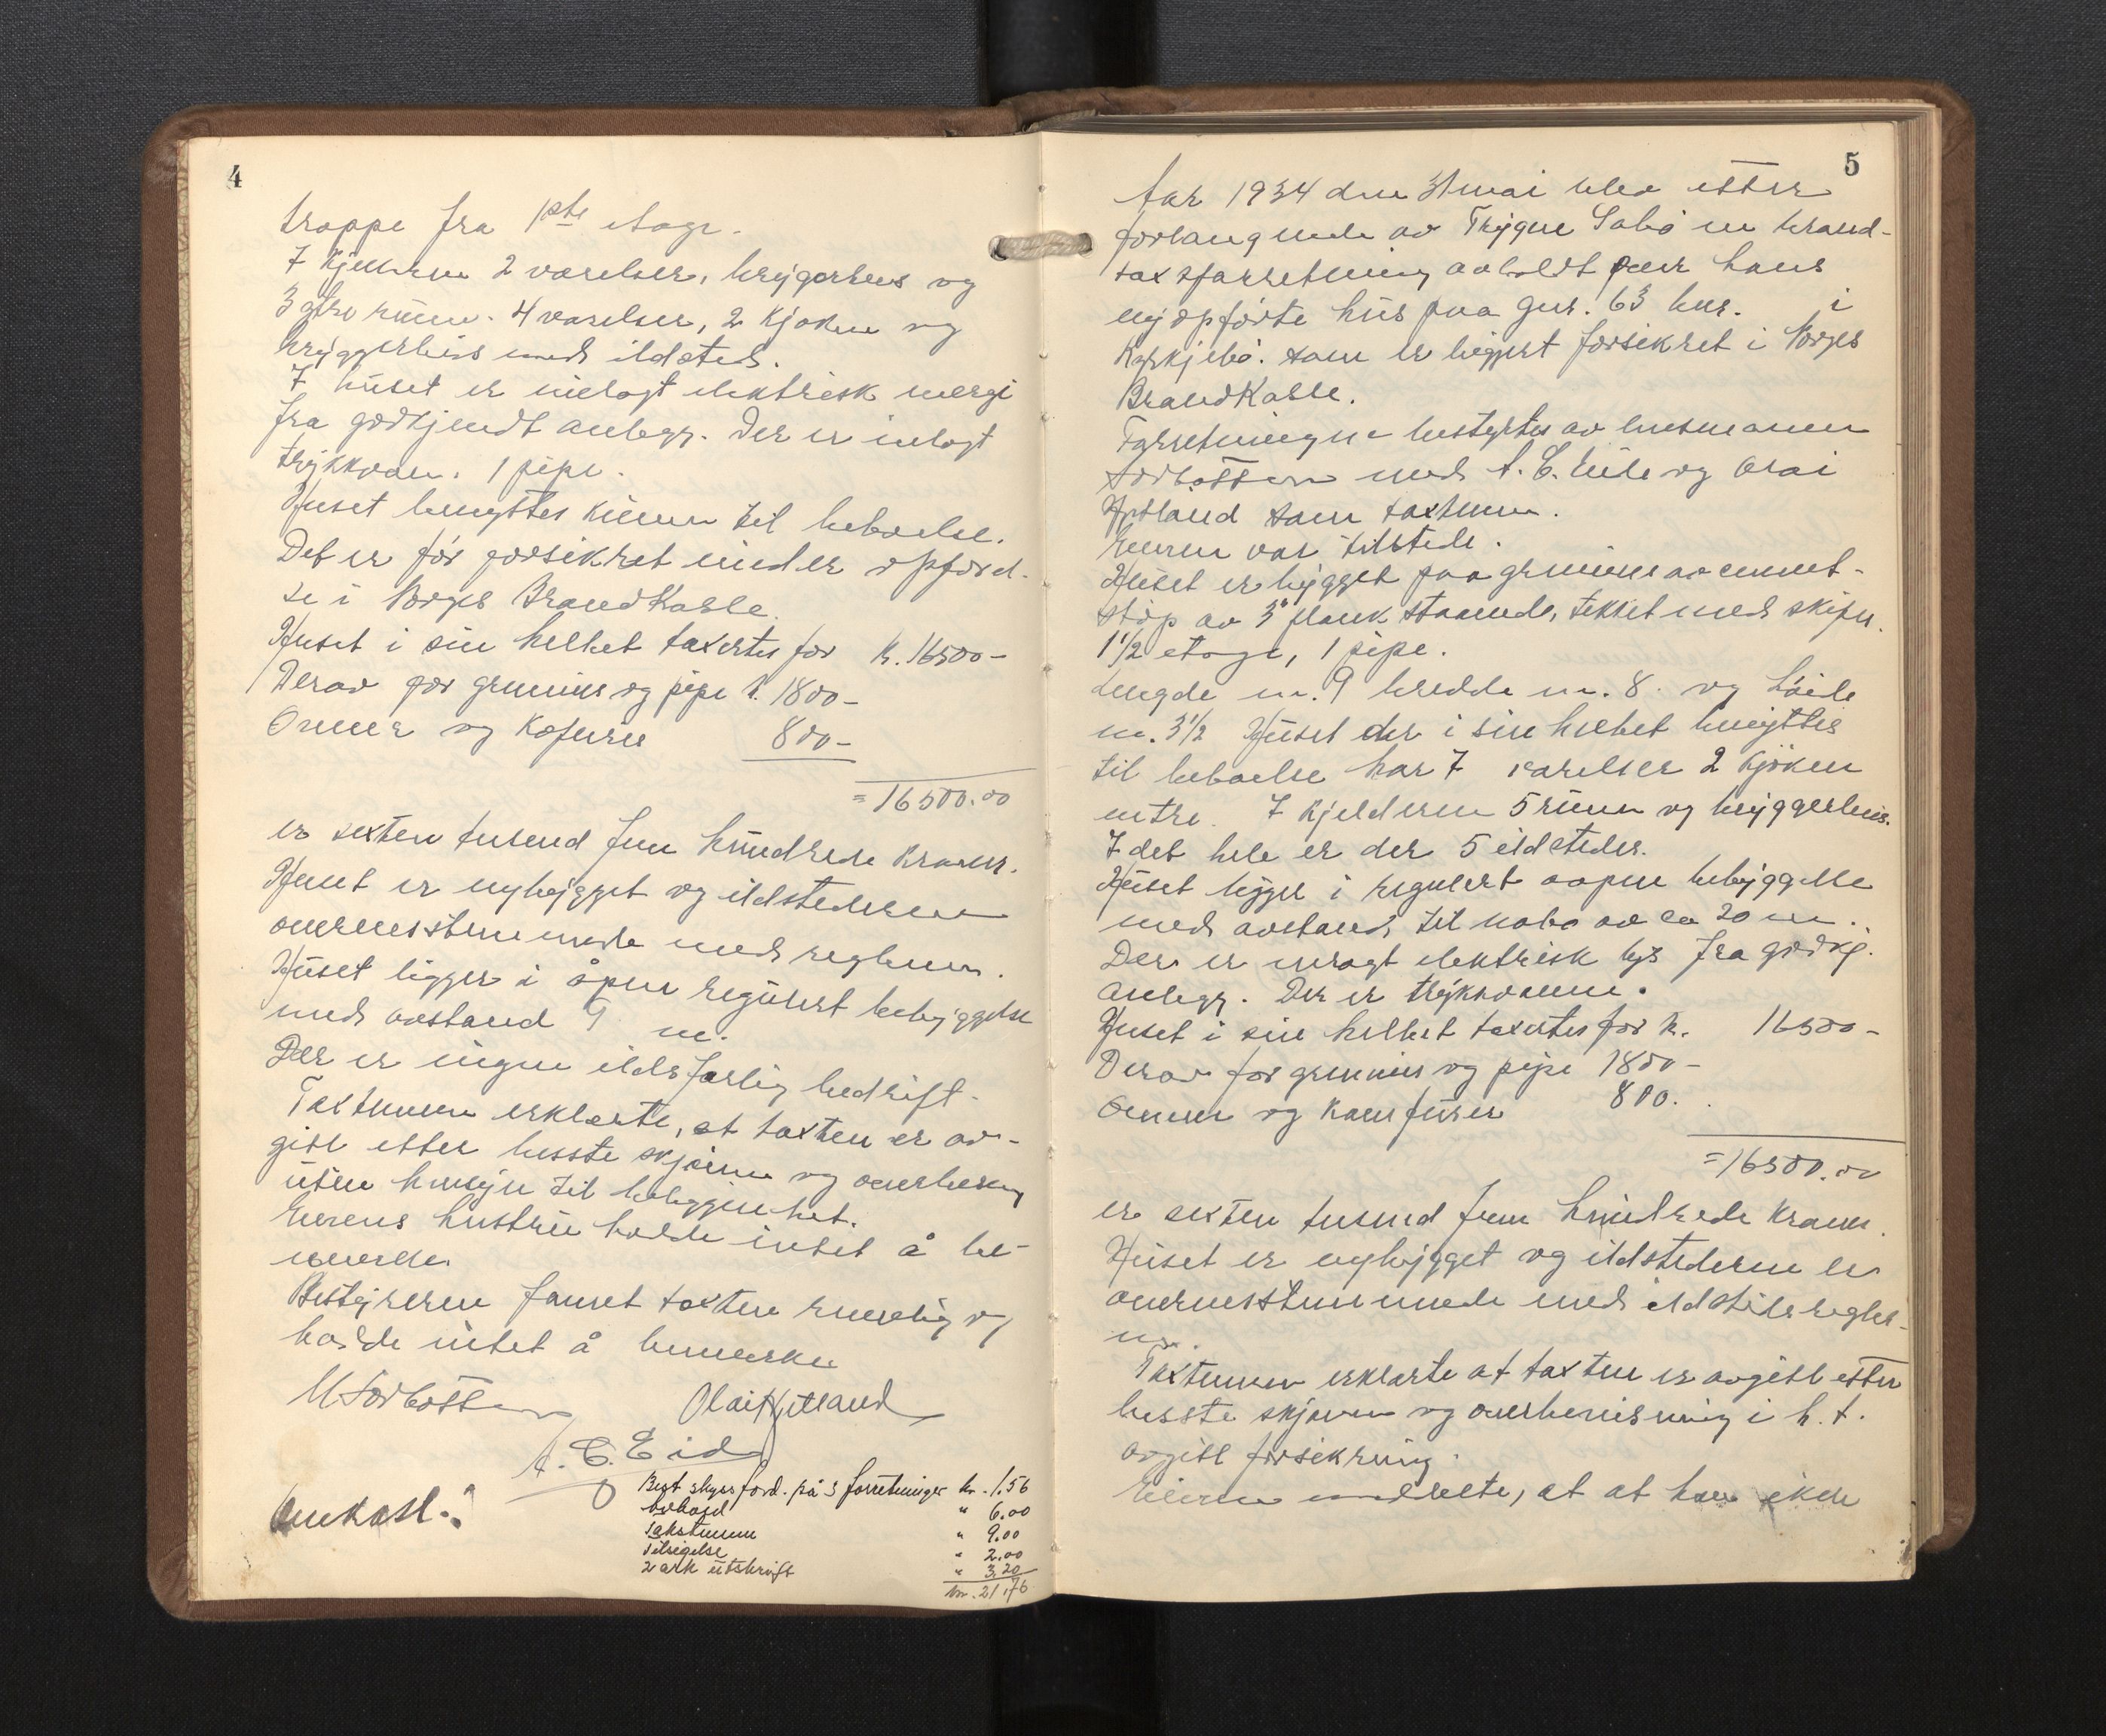 4
trappe fra 1ste etage.
I kjelleren 2 værelser, bryggerhus og
3 andre rum. 4 værelser, 2 kjøken og
bryggerhus med ildsted.
I huset er inlagt elektrisk energi
fra godkjendt anlegg. Der er inlagt
trykkvan. 1 pipe.
Huset benyttes kunn til beboelse.
Det er før forsikret under opførel-
se i Norges Brandkasse.
Huset i sin helhet taxertes for k. 16500-
Derav for grunmur og pipe k. 1800-
Ovner og komfurer 800-
= 16500.00
er sexten tusend fem hundrede kroner.
Huset er nybygget og ildstederne
overensstemmende med reglerne.
Huset ligger i åpen regulert bebyggelse
med avstand 9 m.
Der er ingen ildsfarlig bedrift.
Taxtmenn erklærte, at taxten er av-
gitt etter beste skjønn og overbevisning
uten hensyn til beliggenhet.
Eierens hustru hadde intet å be-
merke.
Bestyreren fannt taxten rimelig og
hadde intet å bemerke
M Sørbotten Olai Hjetland
A. C. Eide
Omkost.:
Best skyssgod. på 3 forretninger kr. 1.56
Arbeid " 6.00
Takstmenn " 9.00
Tilsigelse " 2.00
2 ark utskrift " 3.20
kr. 21.76
5
Aar 1934 den 31 mai blev etter
forlangende av Trygve Sabø en brand-
taxtforretning avholdt over hans
nyopførte hus paa gnr. 63 bnr. i
Kyrkjebø. som er begjært forsikret i Norges
Brandkasse.
Forretningen bestyrtes av lensmannen
Sørbotten med A. C. Eide og Olai
Hjetland som taxtmenn.
Eieren var tilstede.
Huset er bygget paa grunmur av cement-
støp av 3" plank staaende, tekket med skifer.
1 1/2 etage, 1 pipe.
Lengde m. 9 bredde m. 8. og høide
m. 3 1/2 Huset der i sin helhet benyttes
til beboelse har 7 værelser 2 kjøken
entre. I kjelderen 5 rumm og bryggerhus.
I det hele er der 5 ildsteder.
Huset ligger i regulert aapen bebyggelse
med avstand til nabo av ca 20 m.
Der er inlagt elektrisk lys fra godkj.
anlegg. Der er trykkvann.
Huset i sin helhet taxertes for k. 16500-
Derav for grunmur og pipe 1800-
Ovnner og komfurer 800.
= 16500.00
er sexten tusend fem hundrede kroner.
Huset er nybygget og ildstederne er
overensstemmende med ildstedsregler-
ne.
Taxtmenn erklærte at taxten er avgitt etter
besste skjønn og overbevisning i h. t.
avgitt forsikring.
Eieren at at han ikke